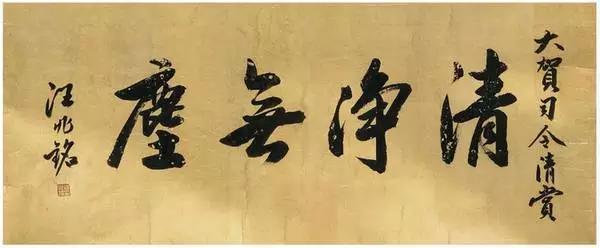 大賀司令清賞
清浄無塵
汪兆銘